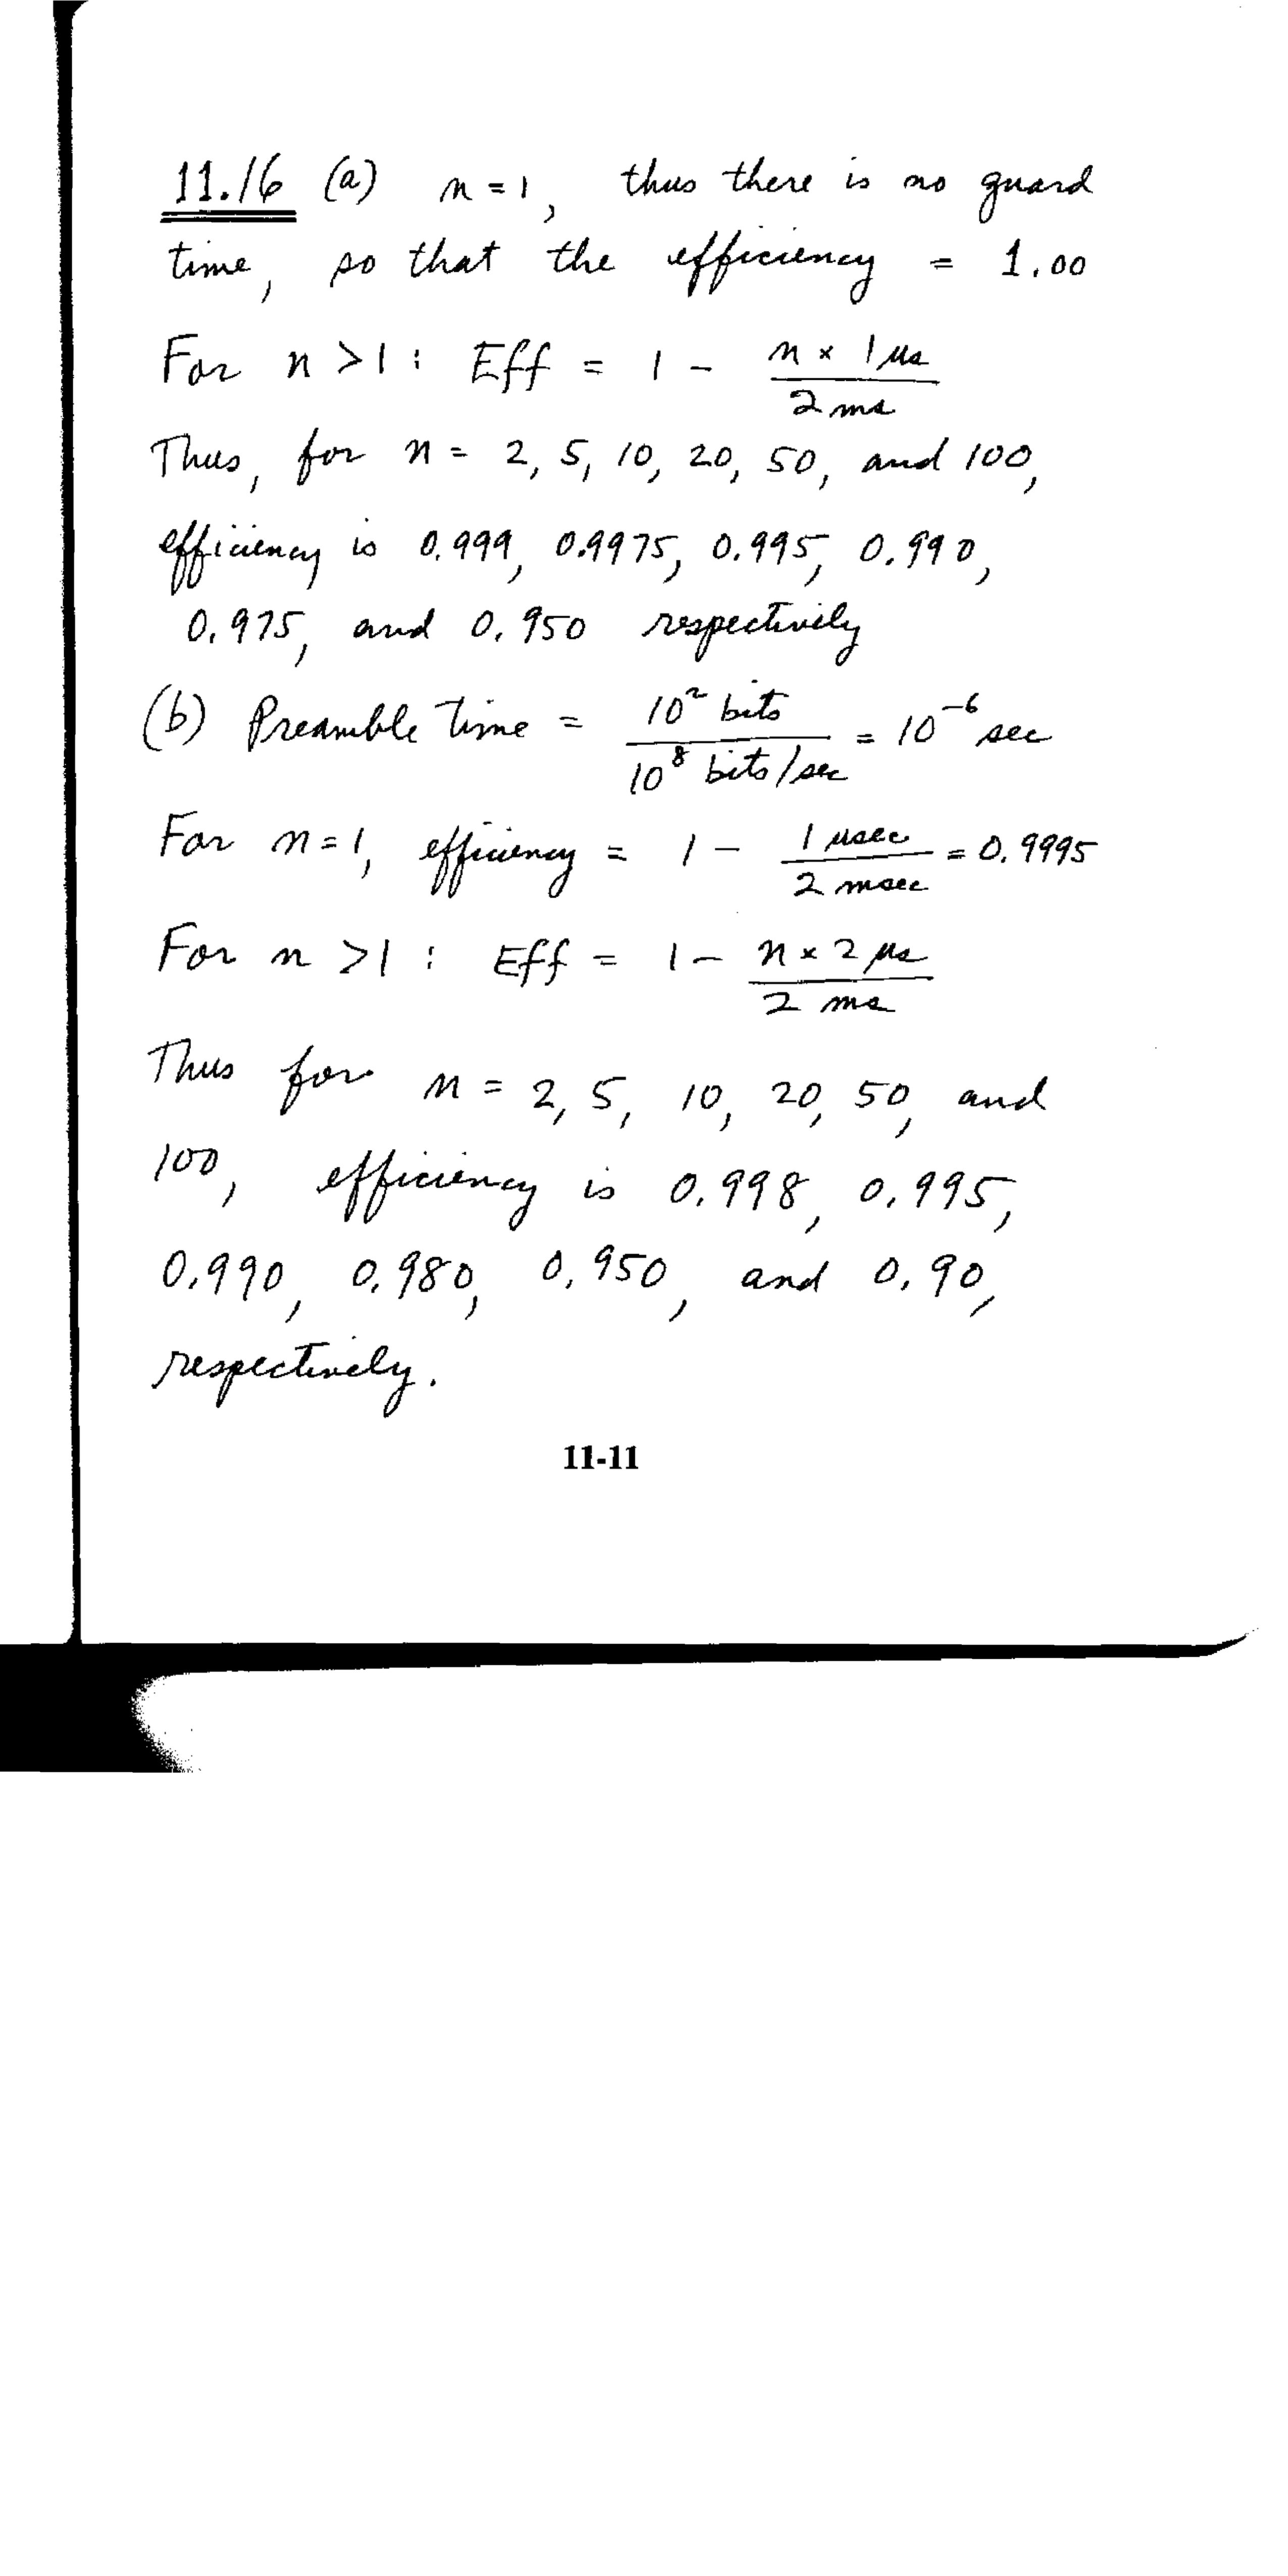 11.16 (a) n = 1, thus there is no guard
time, so that the efficiency = 1.00
For n > 1 : Eff = 1 - n × 1 μs / 2 ms
Thus, for n = 2, 5, 10, 20, 50, and 100,
efficiency is 0.999, 0.9975, 0.995, 0.990,
0.975, and 0.950 respectively
(b) Preamble Time = 10² bits / 10⁸ bits/sec = 10⁻⁶ sec
For n = 1, efficiency = 1 - 1 μsec / 2 msec = 0.9995
For n > 1 : Eff = 1 - n × 2 μs / 2 ms
Thus for n = 2, 5, 10, 20, 50, and
100, efficiency is 0.998, 0.995,
0.990, 0.980, 0.950, and 0.90,
respectively.
11-11